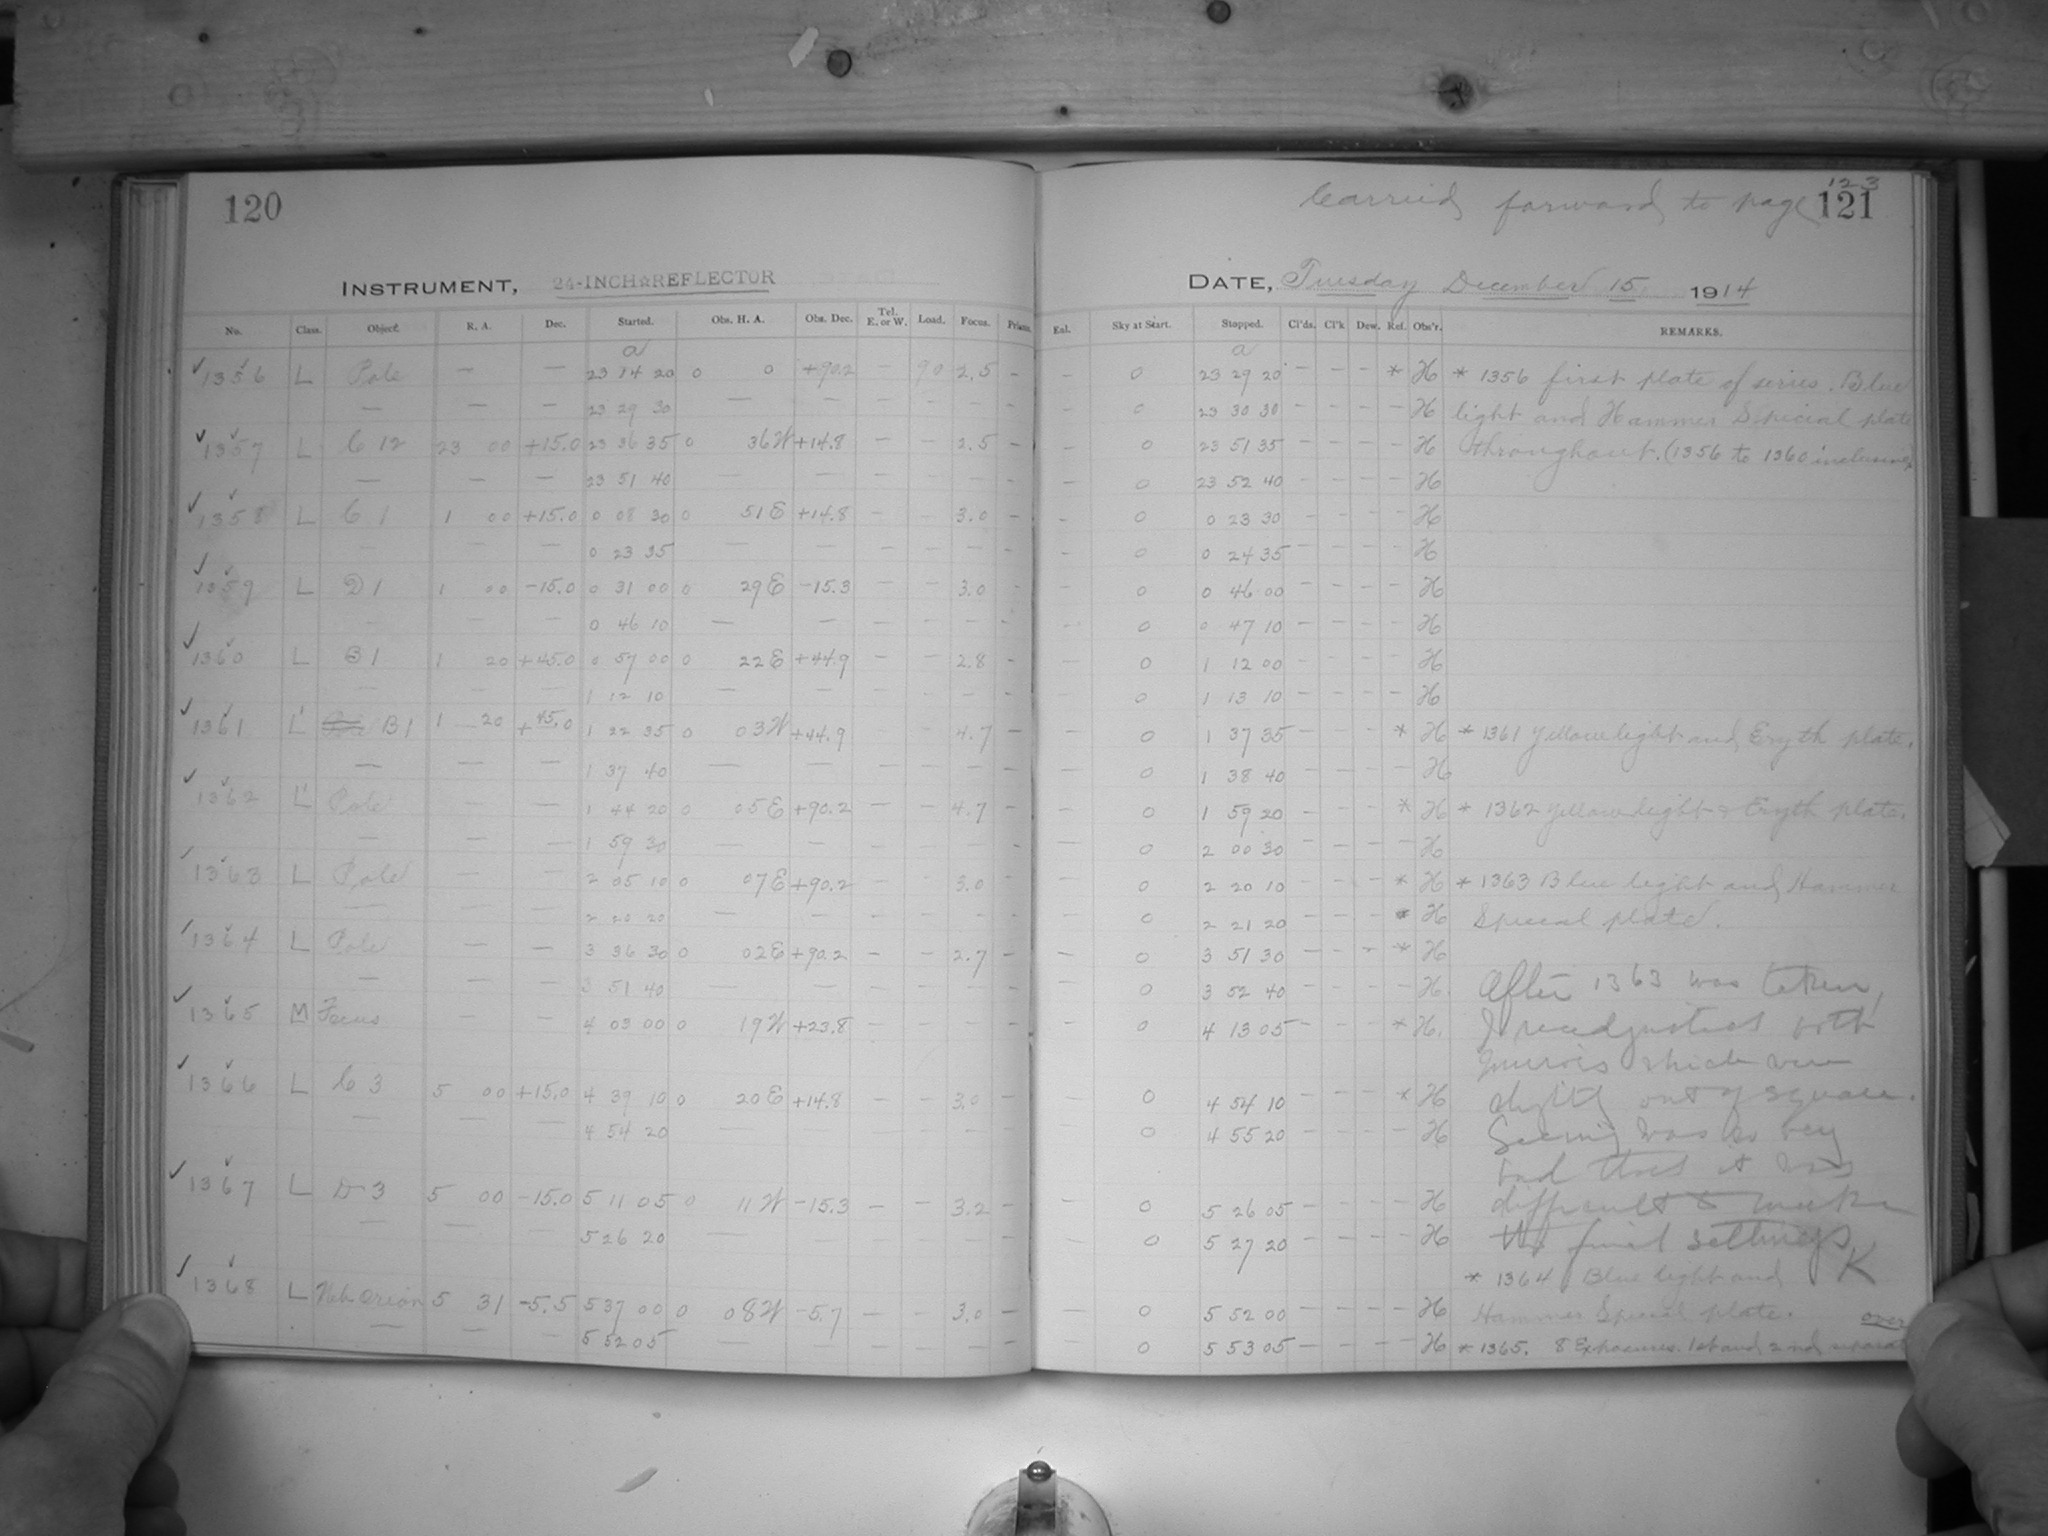 120
INSTRUMENT, 24-INCH☆REFLECTOR
No. Class. Object. R. A. Dec. Started. Obs. H. A. Obs. Dec. Tel. E. or W. Load. Focus. Prisms.
a
1356 L Pole — — 23 14 20 0 0 +90.2 — 90 2.5 —
— — — 23 29 30 — — — — — —
1357 L C 12 23 00 +15.0 23 36 35 0 36 W +14.8 — — 2.5 —
— — — 23 51 40 — — — — — —
1358 L C 1 1 00 +15.0 0 08 30 0 51 E +14.8 — — 3.0 —
— — — 0 23 35 — — — — — —
1359 L D 1 1 00 -15.0 0 31 00 0 29 E -15.3 — — 3.0 —
— — — 0 46 10 — — — — — —
1360 L B 1 1 20 +45.0 0 57 00 0 22 E +44.9 — — 2.8 —
— — — 1 12 10 — — — — — —
1361 L' B 1 1 20 +45.0 1 22 35 0 03 W +44.9 — — 4.7 —
— — — 1 37 40 — — — — — —
1362 L' Pole — — 1 44 20 0 05 E +90.2 — — 4.7 —
— — — 1 59 30 — — — — — —
1363 L Pole — — 2 05 10 0 07 E +90.2 — — 3.0 —
— — — 2 20 20 — — — — — —
1364 L Pole — — 3 36 30 0 02 E +90.2 — — 2.7 —
— — — 3 51 40 — — — — — —
1365 M Focus — — 4 03 00 0 19 W +23.8 — — — —
1366 L C 3 5 00 +15.0 4 39 10 0 20 E +14.8 — — 3.0 —
— — 4 54 20 — — — — — —
1367 L D 3 5 00 -15.0 5 11 05 0 11 W -15.3 — — 3.2 —
— — 5 26 20 — — — — — —
1368 L Neb Orion 5 31 -5.5 5 37 00 0 08 W -5.7 — — 3.0 —
— — — 5 52 05 — — — — — —
Carried forward to page 123
121
DATE, Tuesday December 15, 1914
Eol. Sky at Start. Stopped. Cl'ds. Cl'k Dew. Ref. Obs'r. REMARKS.
a
— 0 23 29 20 — — — * H * 1356 first plate of series. Blue
— 0 23 30 30 — — — H light and Hammer Special plate
— 0 23 51 35 — — — H throughout. (1356 to 1360 inclusive)
— 0 23 52 40 — — — — H
— 0 0 23 30 — — — — H
— 0 0 24 35 — — — — H
— 0 0 46 00 — — — — H
— 0 0 47 10 — — — — H
— 0 1 12 00 — — — — H
— 0 1 13 10 — — — — H
— 0 1 37 35 — — — * H * 1361 Yellow light and Eryth plate.
— 0 1 38 40 — — — — H
— 0 1 59 20 — — — * H * 1362 Yellow light & Eryth plate.
— 0 2 00 30 — — — — H
— 0 2 20 10 — — — * H * 1363 Blue light and Hammer
— 0 2 21 20 — — — H Special plate.
— 0 3 51 30 — — — * H
— 0 3 52 40 — — — — H. After 1363 was taken,
— 0 4 13 05 — — — * H. I readjusted both
mirrors which were
— 0 4 54 10 — — — * H slightly out of square.
— 0 4 55 20 — — — — H Seeing was so very
bad that it was
— 0 5 26 05 — — — — H difficult to make
— 0 5 27 20 — — — — H the final settings K
* 1364 Blue light and
— 0 5 52 00 — — — — H Hammer Special plate. over
0 5 53 05 — — — — H * 1365. 8 Exposures. 1st and 2nd